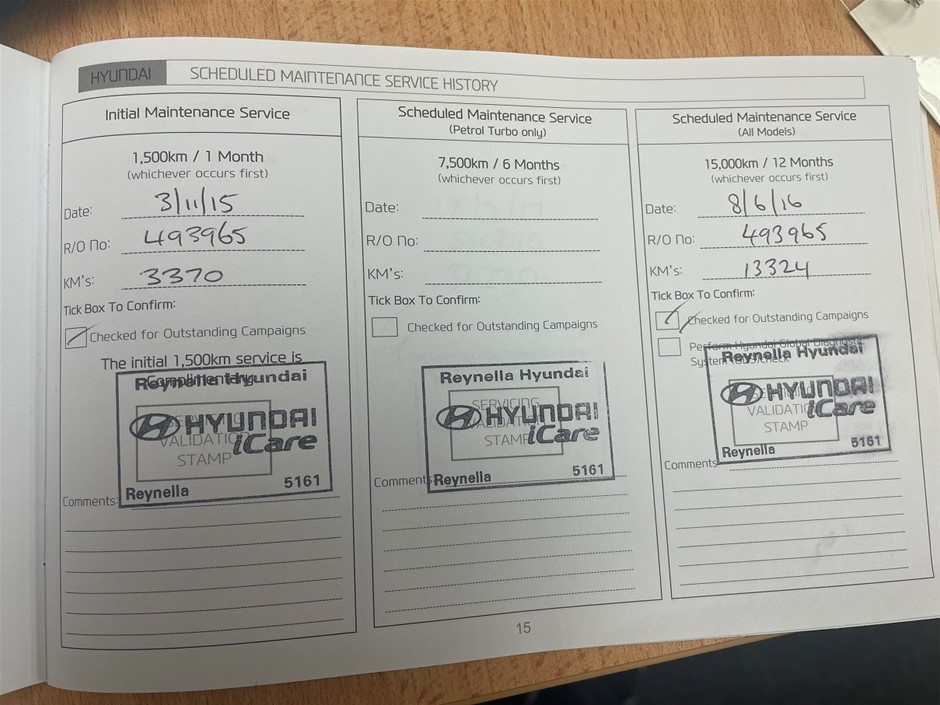 HYUNDAI SCHEDULED MAINTENANCE SERVICE HISTORY
Initial Maintenance Service
1,500km / 1 Month
(whichever occurs first)
Date: 3/11/15
R/O No: 493965
KM's: 3370
Tick Box To Confirm:
Checked for Outstanding Campaigns
The initial 1,500km service is
Complimentary
Reynella Hyundai
HYUNDAI
iCare
VALIDATION
STAMP
Reynella 5161
Comments:
Scheduled Maintenance Service
(Petrol Turbo only)
7,500km / 6 Months
(whichever occurs first)
Date:
R/O No:
KM's:
Tick Box To Confirm:
Checked for Outstanding Campaigns
Reynella Hyundai
SERVICING
HYUNDAI
VALIDATION
iCare
STAMP
Reynella 5161
Comments
Scheduled Maintenance Service
(All Models)
15,000km / 12 Months
(whichever occurs first)
Date: 8/6/16
R/O No: 493965
KM's: 13324
Tick Box To Confirm:
Checked for Outstanding Campaigns
Perform Hyundai Global Diagnostic
System (GDS) check
Reynella Hyundai
HYUNDAI
VALIDATION
iCare
STAMP
Reynella 5161
Comments
15